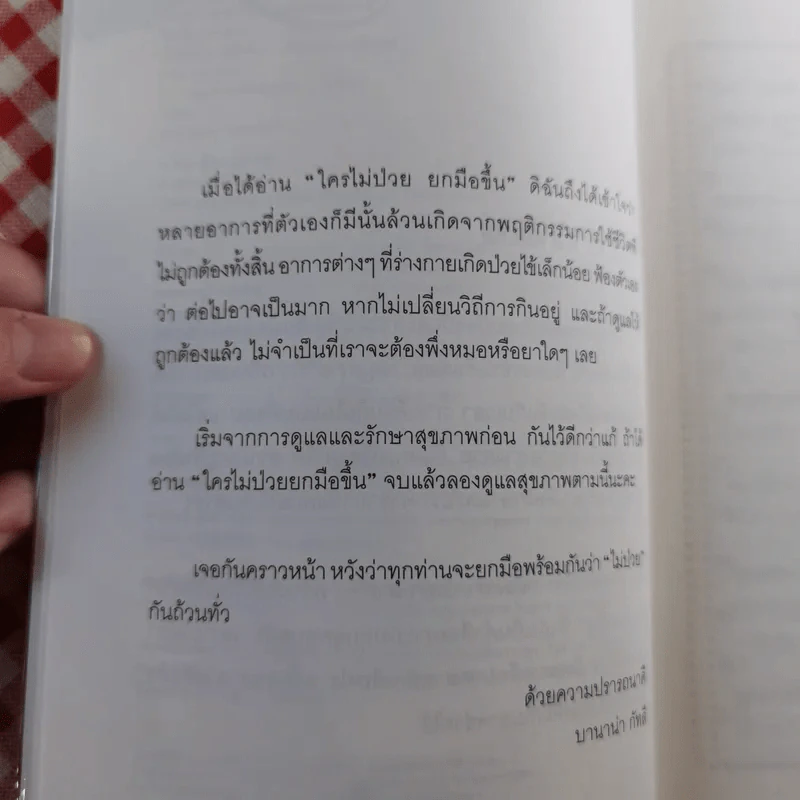 เมื่อได้อ่าน “ใครไม่ป่วย ยกมือขึ้น” ดิฉันถึงได้เข้าใจว่า
หลายอาการที่ตัวเองก็มีนั้นล้วนเกิดจากพฤติกรรมการใช้ชีวิตที่
ไม่ถูกต้องทั้งสิ้น อาการต่างๆ ที่ร่างกายเกิดป่วยไข้เล็กน้อย ฟ้องตัวเอง
ว่า ต่อไปอาจเป็นมาก หากไม่เปลี่ยนวิถีการกินอยู่ และถ้าดูแลให้
ถูกต้องแล้ว ไม่จำเป็นที่เราจะต้องพึ่งหมอหรือยาใดๆ เลย
เริ่มจากการดูแลและรักษาสุขภาพก่อน กันไว้ดีกว่าแก้ ถ้าได้
อ่าน “ใครไม่ป่วยยกมือขึ้น” จบแล้วลองดูแลสุขภาพตามนี้นะคะ
เจอกันคราวหน้า หวังว่าทุกท่านจะยกมือพร้อมกันว่า “ไม่ป่วย”
กันถ้วนทั่ว
ด้วยความปรารถนาดี
บานาน่า กัทลี